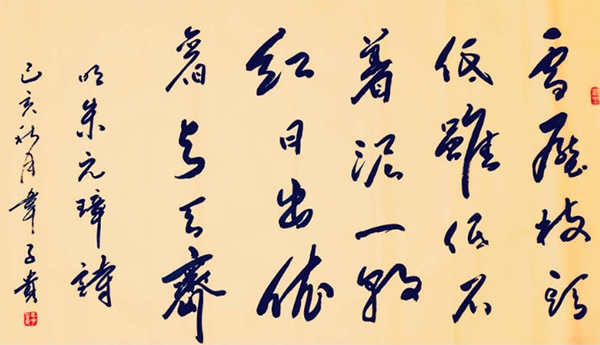 雪壓枝頭
低雖低不
着泥一朝
紅日出依
舊与天齊
明朱元璋詩
己亥秋月